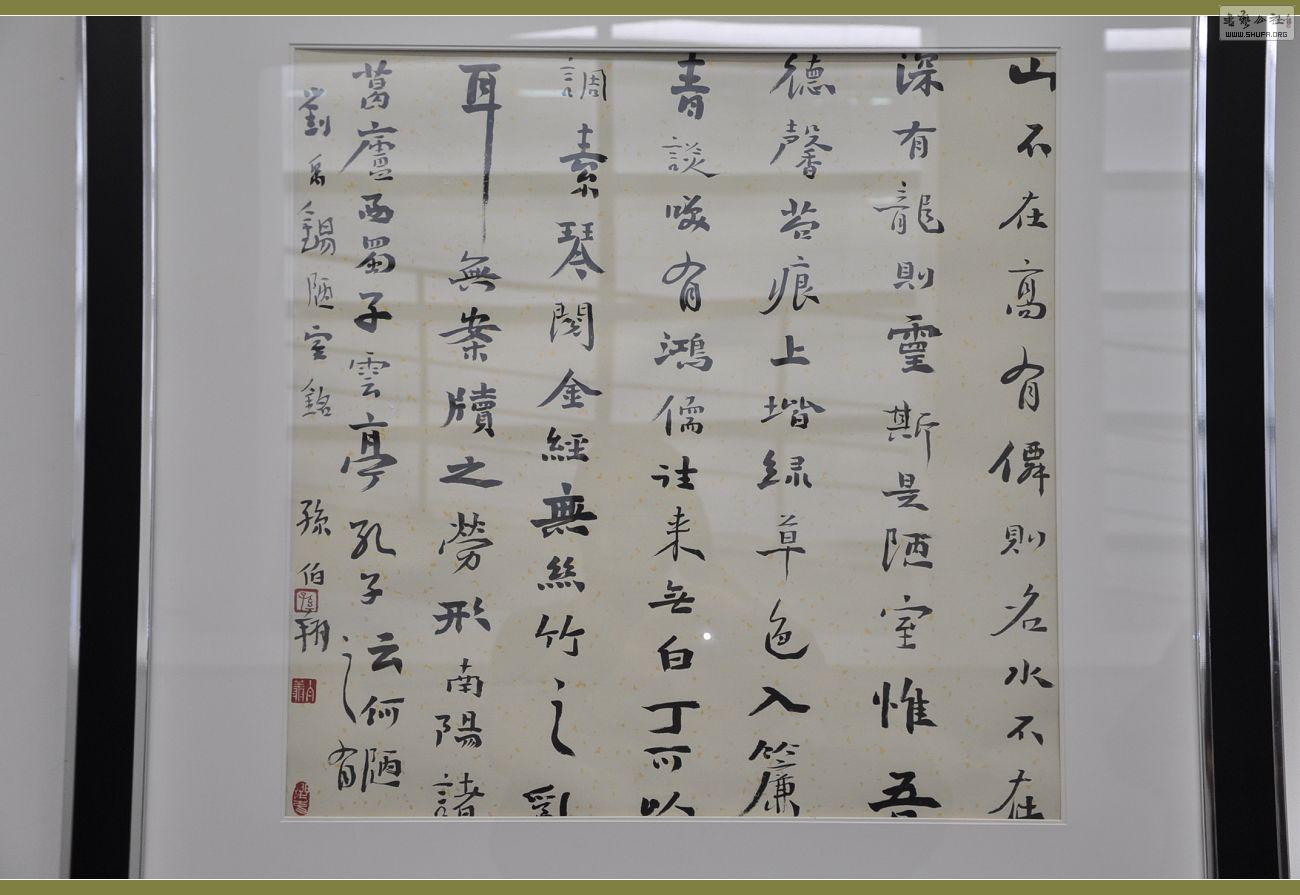 山不在高有僊則名水不在
深有龍則靈斯是陋室惟吾
德馨苔痕上堦緑草色入簾
青談咲有鴻儒往来无白丁可以
調素琴閲金經無絲竹之亂
耳無案牘之勞形南陽諸
葛廬西蜀子雲亭孔子云何陋
之有
劉禹錫陋室銘 孫伯翔
WWW.SHUFA.ORG